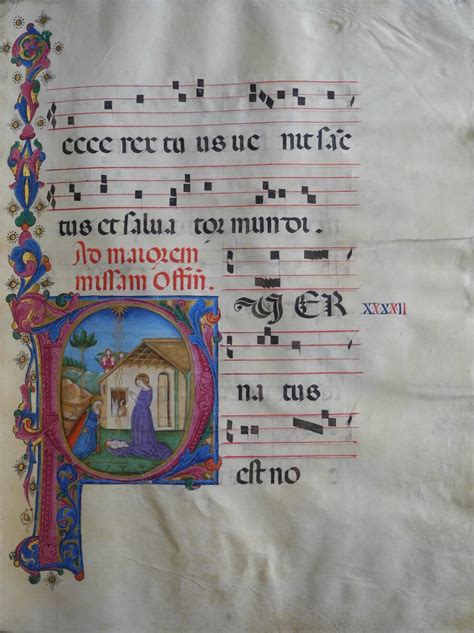 ecce rex tu us ue nit sāc
tus et salua tor mundi.
Ad maiorem
missam Offiñ.
PUER
na tus
est no